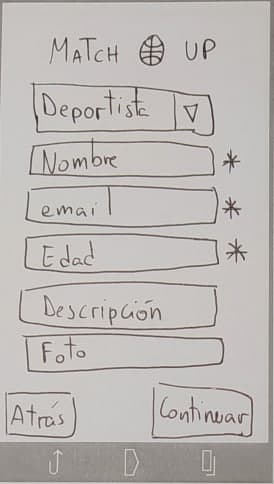 MATCH UP
Deportista
Nombre *
email *
Edad *
Descripción
Foto
Atrás
Continuar